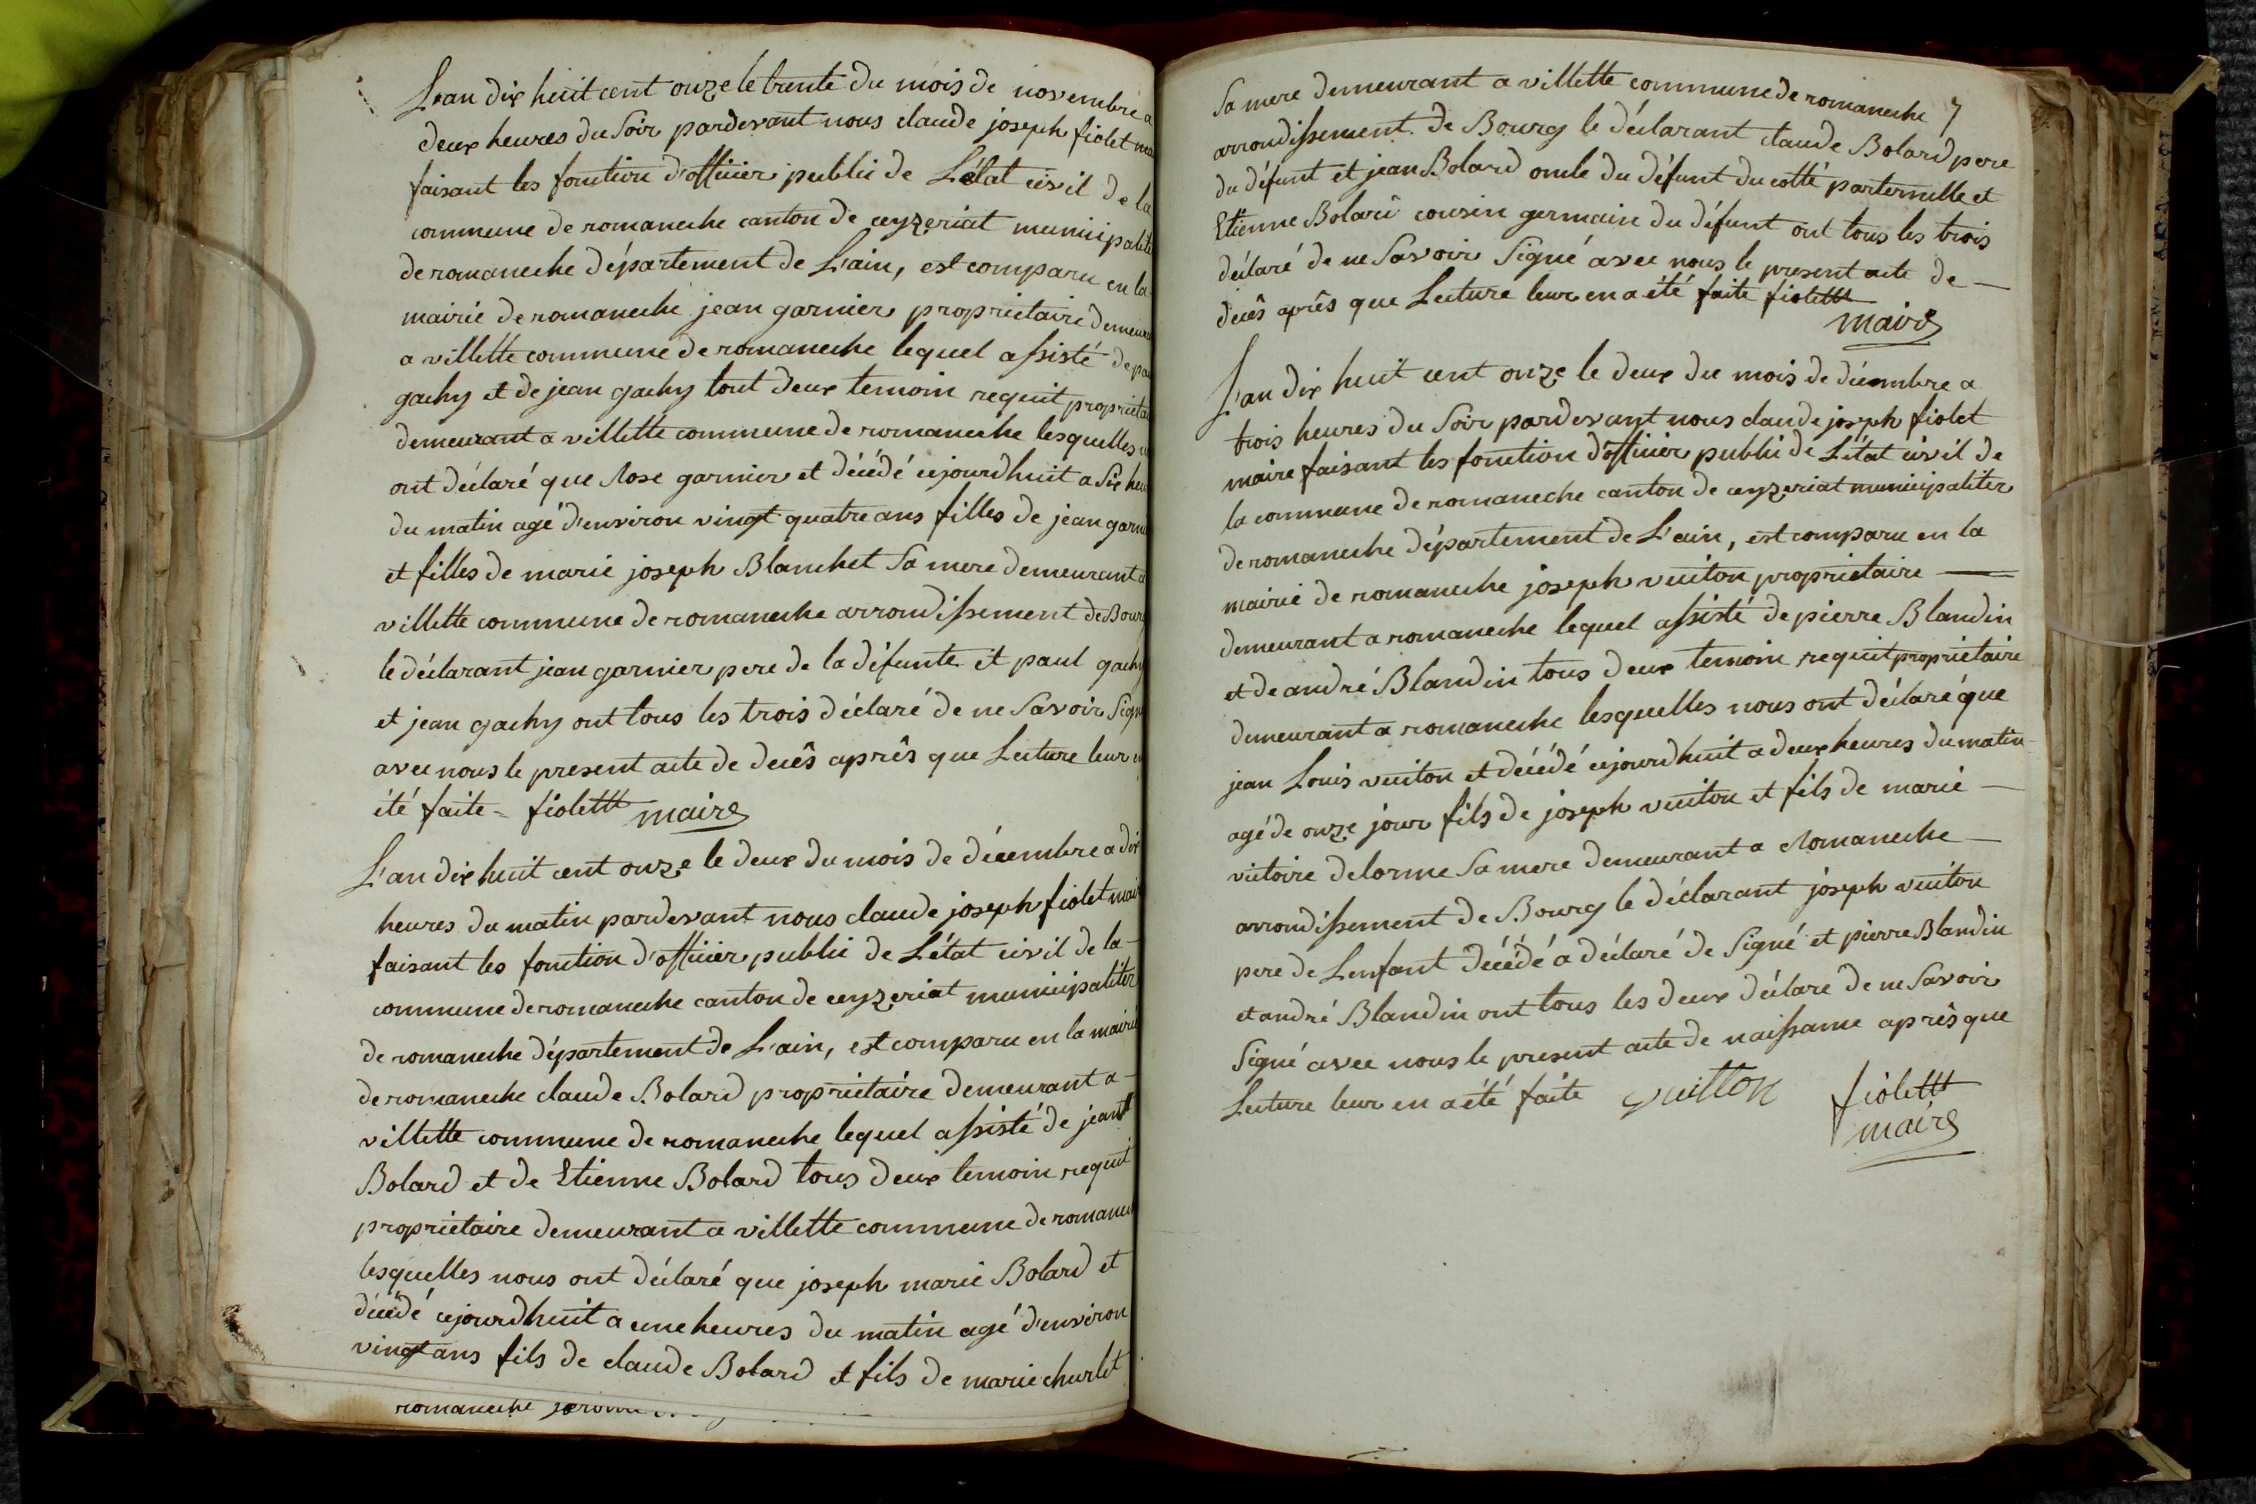 L'an dix huit cent onze le trente du mois de novembre a
deux heures du Soir pardevant nous claude joseph fiolet
faisant les fonction d'officier public de L'état civil de la
commune de romaneche canton de ceyzeriat municipalité
de romaneche département de L'ain, est comparu en la
mairie de romaneche jean garnier propriétaire demeur
a villette commune de romaneche lequel assisté de pa
gachy et de jean gachy tout deux temoin requit propriéta
demeurant a villette commune de romaneche lesquelles
ont déclaré que Rose garnier et décédé cejourdhuit a Six heu
du matin agé d'environ vingt quatre ans filles de jean garn
et filles de marie joseph Blanchet Sa mere demeurant a
villette commune de romaneche arrondissement de Bourg
le déclarant jean garnier pere de la défunte et paul gachy
et jean gachy ont tous les trois déclaré de ne Savoir Sign
avec nous le present acte de decês aprês que Lecture leur
été faite - fiolettt maire
L'an dix huit cent onze le deux du mois de décembre a dix
heures du matin pardevant nous claude joseph fiolet mair
faisant les fonction d'officier public de L'état civil de la -
commune de romaneche canton de ceyzeriat municipaliter
de romaneche département de L'ain, est comparu en la mairie
de romaneche claude Bolard propriétaire demeurant a -
villette commune de romaneche lequel assisté de jean
Bolard et de Etienne Bolard tous deux temoin requit
propriétaire demeurant a villette commune de romanech
lesquelles nous ont déclaré que joseph marie Bolard et
décédé cejourdhuit a une heures du matin agé d'environ
vingt ans fils de claude Bolard et fils de marie churlet
romaneche
Sa mere demeurant a villette commune de romaneche 7
arrondissement de Bourg le déclarant claude Bolard pere
du défunt et jean Bolard oncle du défunt du cotté parternelle et
Etienne Bolard cousin germain du défunt ont tous les trois
déclaré de ne Savoir Signé avec nous le present acte de -
decês aprês que Lecture leur en a été faite fiolettt
maire
L'an dix huit cent onze le deux du mois de décembre a
trois heures du Soir pardevant nous claude joseph fiolet
maire faisant les fonction d'officier public de L'état civil de
la commune de romaneche canton de ceyzeriat municipaliter
de romaneche département de L'ain, est comparu en la
mairie de romaneche joseph vuiton propriétaire -
demeurant a romaneche lequel assisté de pierre Blandin
et de andré Blandin tous deux temoin requit propriétaire
demeurant a romaneche lesquelles nous ont déclaré que
jean Louis vuiton et décédé cejourdhuit a deux heures du matin
agé de onze jour fils de joseph vuiton et fils de marie -
victoire delorme Sa mere demeurant a Romaneche -
arrondissement de Bourg le déclarant joseph vuiton
pere de Lenfant décédé a déclaré de Signé et pierre Blandin
et andré Blandin ont tous les deux déclare de ne Savoir
Signé avec nous le present acte de naissance aprês que
Lecture leur en a été faite vuitton fiolettt
maire